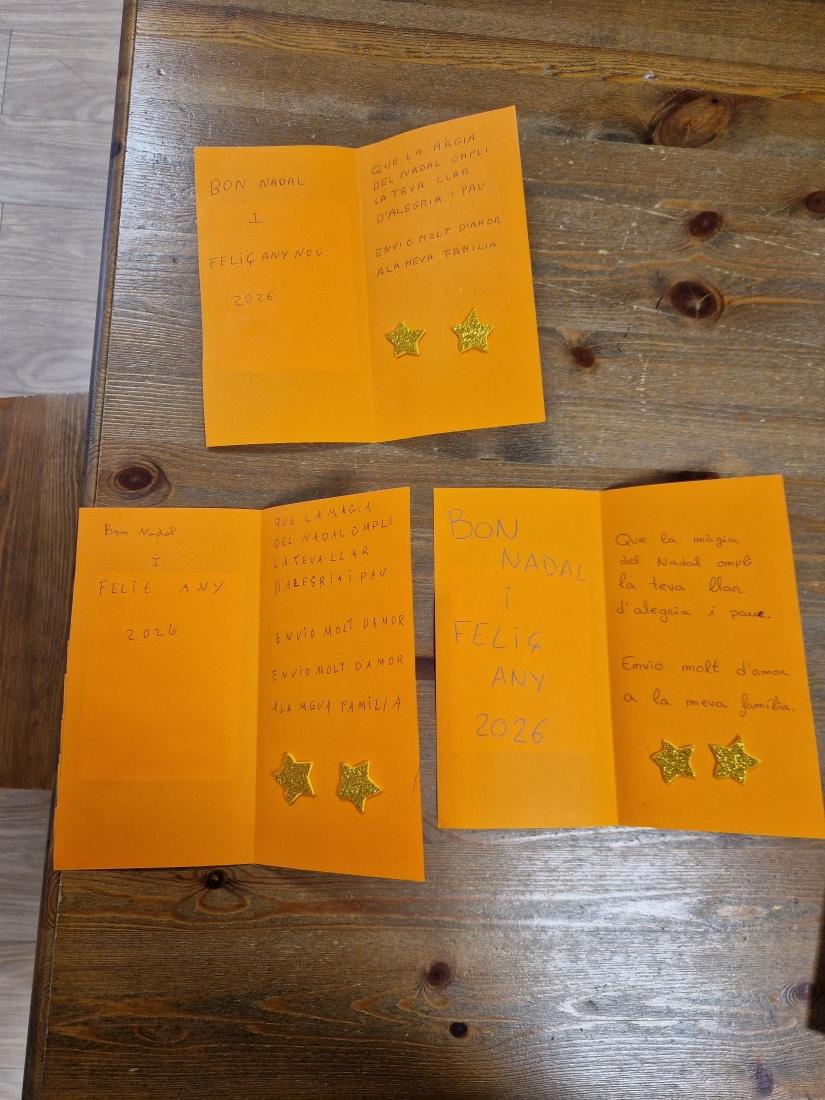 BON NADAL
I
FELIÇ ANY NOU
2026
QUE LA MÀGIA
DEL NADAL OMPLI
LA TEVA LLAR
D'ALEGRIA i PAU
ENVIO MOLT D'AMOR
A LA MEVA FAMILIA
Bon Nadal
I
FELIÇ ANY
2026
QUE LA MAGIA
DEL NADAL OMPLI
LA TEVA LLAR
D'ALEGRIA i PAU
ENVIO MOLT D'AMOR
ENVIO MOLT D'AMOR
A LA MEVA FAMíLIA
BON
NADAL
i
FELIÇ
ANY
2026
Que la màgia
del Nadal ompli
la teva llar
d'alegria i pau.
Envio molt d'amor
a la meva família.